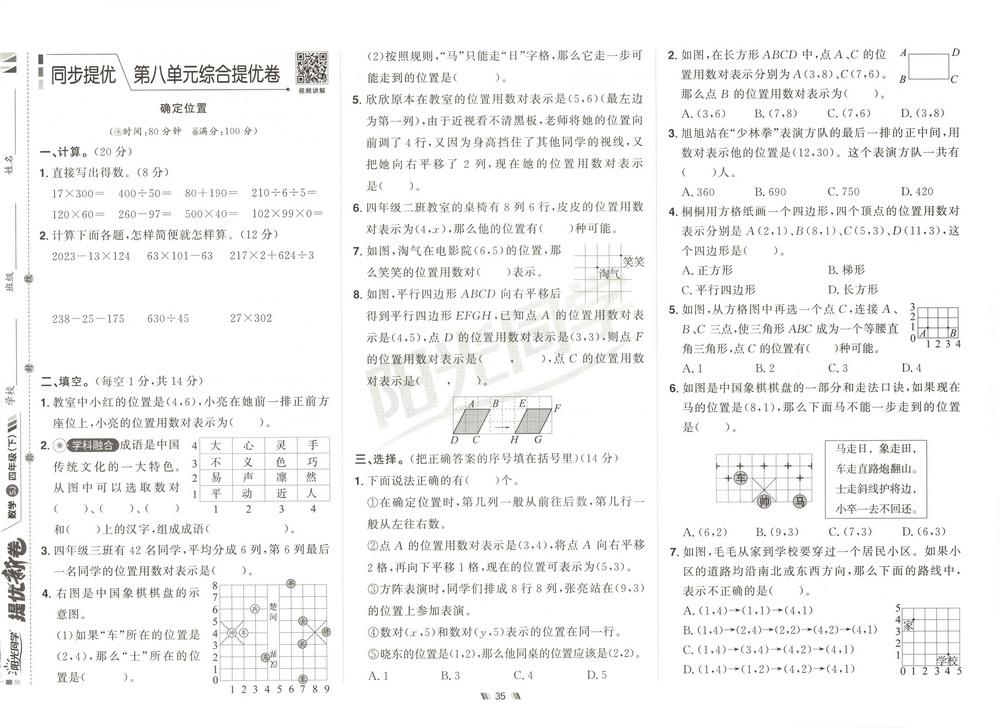 同步提优 第八单元综合提优卷
视频讲解
确定位置
(时间:80分钟 满分:100分)
一、计算。(20分)
1. 直接写出得数。(8分)
17×300= 400÷50= 80+190= 210÷6÷5=
120×60= 260-97= 500×40= 102×99×0=
2. 计算下面各题,怎样简便就怎样算。(12分)
2023-13×124 63×101-63 217×2+624÷3
238-25-175 630÷45 27×302
二、填空。(每空1分,共14分)
1. 教室中小红的位置是(4,6),小亮在她前一排正前方
座位上,小亮的位置用数对表示为( )。
2. 学科融合 成语是中国
传统文化的一大特色。
从图中可以选取数对
( )、( )、( )
和( )上的汉字,组成成语( )。
4 大 心 灵 手
3 不 义 色 巧
2 易 声 凛 然
1 平 动 近 人
1 2 3 4
3. 四年级三班有42名同学,平均分成6列,第6列最后
一名同学的位置用数对表示为( )。
4. 右图是中国象棋棋盘的示
意图。
(1)如果“车”所在的位置是
(2,4),那么“士”所在的位
置是( )。
8
7
6
5
4
3
2
1
0
楚河
1 2 3 4 5 6 7 8 9
(2)按照规则,“马”只能走“日”字格,那么它走一步可
能走到的位置是( )。
5. 欣欣原本在教室的位置用数对表示是(5,6)(最左边
为第一列),由于近视看不清黑板,老师将她的位置向
前调了4行,又因为身高挡住了其他同学的视线,又
把她向右平移了2列,现在她的位置用数对表示
是( )。
6. 四年级二班教室的桌椅有8列6行,皮皮的位置用数
对表示为(4,x),那么他的位置有( )种可能。
7. 如图,淘气在电影院(6,5)的位置,那
么笑笑的位置用数对( )表示。
笑笑
淘气
8. 如图,平行四边形ABCD向右平移后
得到平行四边形EFGH,已知点A的位置用数对表
示是(4,5),点D的位置用数对表示是(3,3),则点F
的位置用数对表示是( , ),点C的位置用数
对表示是( , )。
A B E F
D C H G
三、选择。(把正确答案的序号填在括号里)(14分)
1. 下面说法正确的有( )个。
①在确定位置时,第几列一般从前往后数,第几行一
般从左往右数。
②点A的位置用数对表示是(3,4),将点A向右平移
2格,再向下平移1格,现在的位置可表示为(5,3)。
③方阵表演时,同学们排成8行8列,张亮站在(9,3)
的位置上参加表演。
④数对(x,5)和数对(y,5)表示的位置在同一行。
⑤晓东的位置是(1,2),那么他同桌的位置应该是(2,2)。
A. 1 B. 3 C. 4 D. 5
2. 如图,在长方形ABCD中,点A、C的位
置用数对表示分别为A(3,8)、C(7,6)。
那么点B的位置用数对表示为( )。
A D
B C
A. (3,6) B. (7,8) C. (7,6) D. (3,8)
3. 旭旭站在“少林拳”表演方队的最后一排的正中间,用
数对表示他的位置是(12,30)。这个表演方队一共有
( )人。
A. 360 B. 690 C. 750 D. 420
4. 桐桐用方格纸画一个四边形,四个顶点的位置用数对
表示分别是A(2,1)、B(8,1)、C(5,3)、D(11,3),这
个四边形是( )。
A. 正方形 B. 梯形
C. 平行四边形 D. 长方形
5. 如图,从方格图中再选一个点C,连接A、
B、C三点,使三角形ABC成为一个等腰直
角三角形,点C的位置有( )种可能。
3
2
1
0
A B
1 2 3 4
A. 1 B. 2 C. 3 D. 4
6. 如图是中国象棋棋盘的一部分和走法口诀,如果现在
马的位置是(8,1),那么下面马不能一步走到的位置
是( )。
车
帅
马
马走日,象走田,
车走直路炮翻山。
士走斜线护将边,
小卒一去不回还。
A. (6,2) B. (9,3) C. (7,3) D. (6,3)
7. 如图,毛毛从家到学校要穿过一个居民小区。如果小
区的道路均沿南北或东西方向,那么下面的路线中,
表示不正确的是( )。
A. (1,4)→(1,1)→(4,1)
B. (1,4)→(2,4)→(2,2)→(4,2)→(4,1)
C. (1,4)→(3,4)→(4,2)→(4,1)
D. (1,4)→(1,2)→(4,2)→(4,1)
5
4
3
2
1
0
家
学校
1 2 3 4 5
35
姓名
班级
学校
数学 SJ 四年级(下)
提优新卷
阳光同学
阳光同学